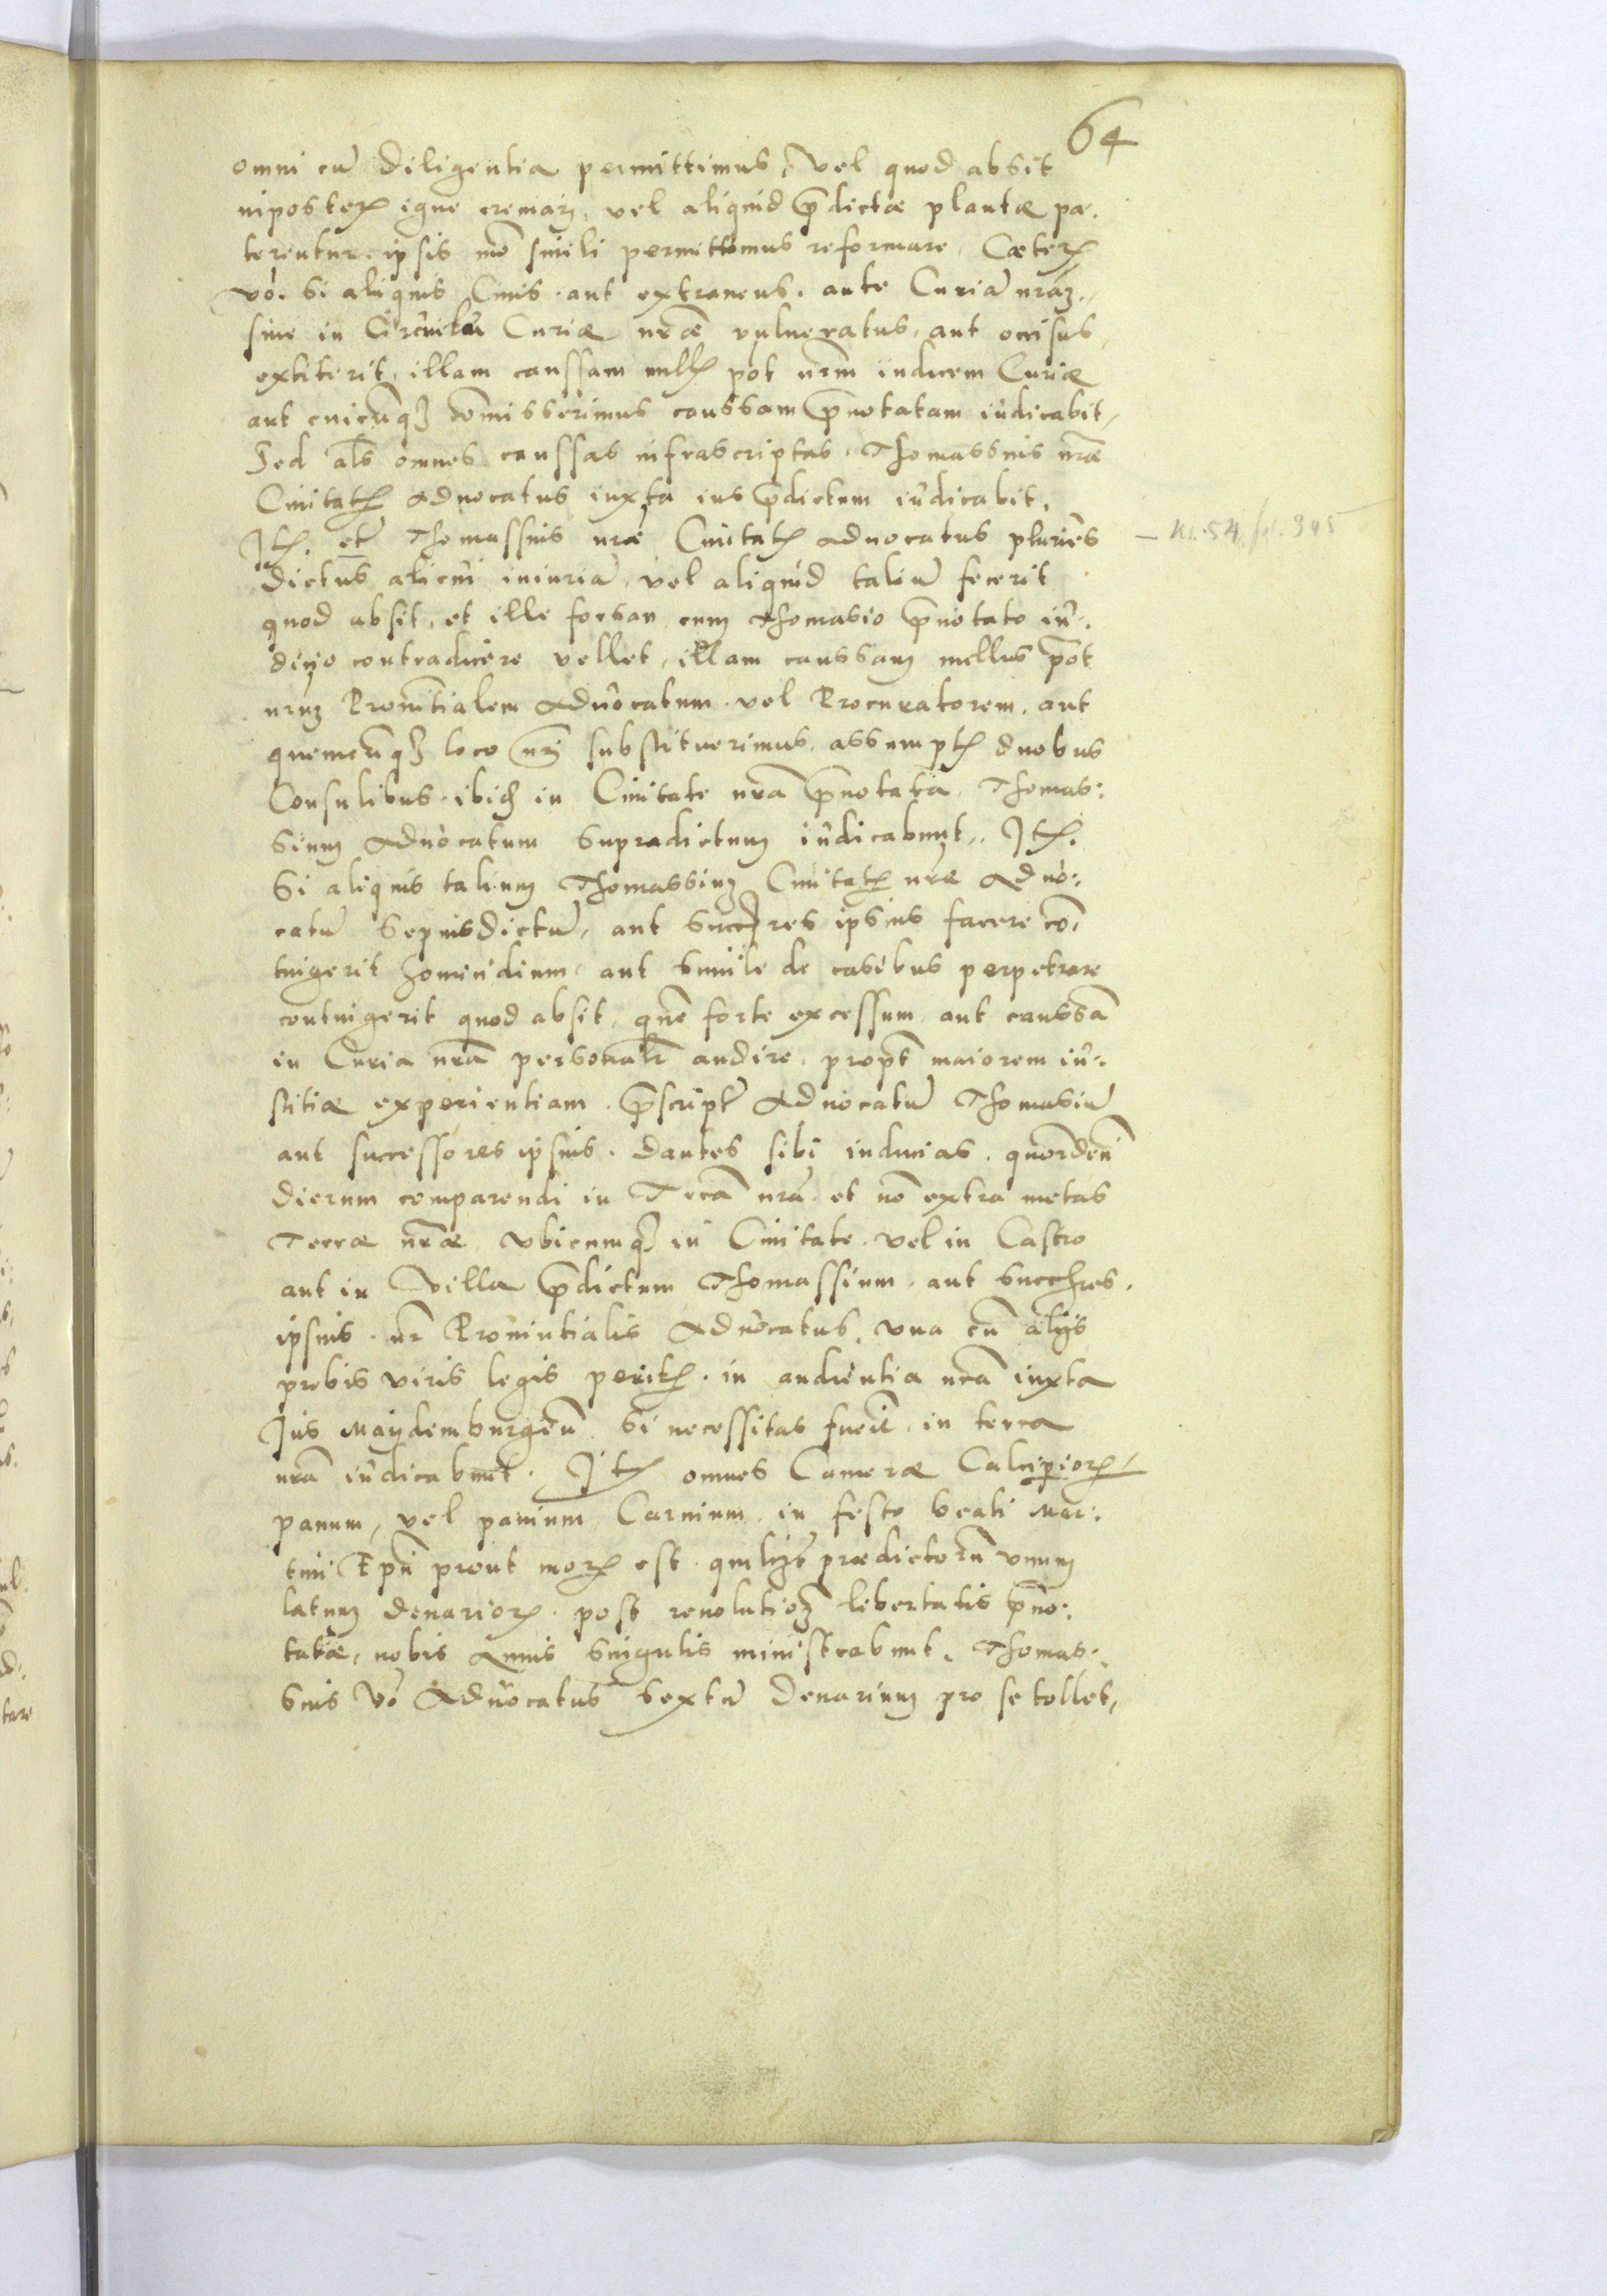 64
omni cu diligentia permittimus, vel quod absit
inposter igne cremari, vel aliquid p̄dictæ plantæ pæ.
terentur. ipsis mō simili permittimus reformare, Cæter
vō. Si aliquis Ciuis. aut extraneus. ante Curiā nrām.
siue in Circuitu Curiæ nr̄æ vulneratus, aut occisus
extiterit, illam caussam null pot nrm iudicem Curiæ
aut cuicūq₃ cōmisserimus caussam p̄notatam iudicabit,
Sed al̄s omnes caussas infrascriptas. Thomassius nræ
Ciuitat Aduocatus iuxta ius p̄dictum iudicabit.
It. et Thomassius nræ Ciuitat Aduocatus pluries
dictus alicui iniuriā, vel aliquid taliū fecerit
quod absit, et ille forsan cum Thomasio p̄notato iu:
dicio contradicere vellet, illam caussam nullus pōt
nrum Prouīntialem Aduocatum. vel Procuratorem. aut
quemcūq₃ loco nri substituerimus, assumpt duobus
Consulibus. ibid in Ciuitate nrā p̄notata, Thomas:
sium Aduocatum supradictum iudicabunt.. It.
Si aliquis talium Thomassium Ciuitat nræ Aduo:
catū sepiusdictū, aut succres ipsius facere cō
tingerit homicidium, aut simile de casibus perpetrare
contingerit quod absit, quē forte excessum aut caussā
in Curia nrā personalr audire, propt maiorem iu:
stitiæ experientiam. p̄script Aduocatū Thomasiū
aut successores ipsius. dantes sibi inducias. quordēn
dierum comparendi in Terrā nrā. et nō extra metas
Terræ nr̄æ, vbicumq₃ in Ciuitate. vel in Castro
aut in Villa p̄dictum Thomassium. aut succres.
ipsius. nr Prouintialis Aduocatus, vna cū alijs
probis viris legis perit. in audientia nrā iuxta
Jus Maydemburgēn. Si necessitas fuerit. in terra
nrā iudicabunt. It omnes Cameræ Calcipior
panum, vel panium Carnium. in festo beati Mar:
tini Epī prout mor est. quilijt prædictorū vnum
latum denarior. post reuolutio₃ libertatis p̄no:
tatæ, nobis Annis singulis ministrabunt. Thomas:
sius vō Aduocatus sextū Denarium pro se tollet,
— N. 54. fol. 345